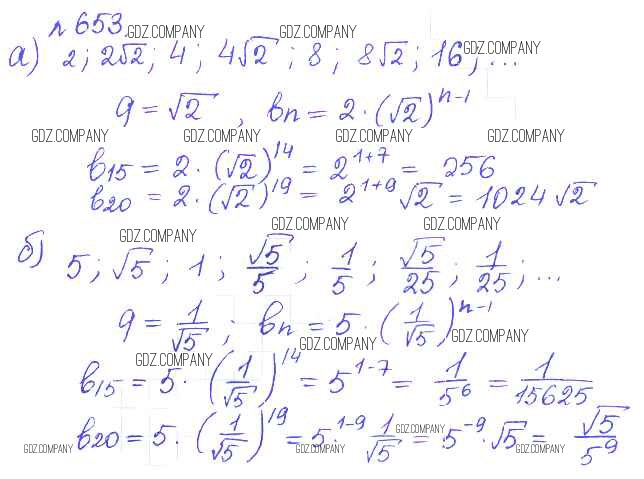 № 653. GDZ.COMPANY GDZ.COMPANY
а) 2; 2√2; 4; 4√2; 8; 8√2; 16; ... GDZ.COMPANY
q = √2, bn = 2·(√2)^(n-1)
GDZ.COMPANY GDZ.COMPANY GDZ.COMPANY GDZ.COMPANY
b15 = 2·(√2)^14 = 2^(1+7) = 256
b20 = 2·(√2)^19 = 2^(1+9) √2 = 1024√2
GDZ.COMPANY GDZ.COMPANY GDZ.COMPANY
б) 5; √5; 1; √5/5; 1/5; √5/25; 1/25; ...
q = 1/√5; bn = 5·(1/√5)^(n-1)
GDZ.COMPANY GDZ.COMPANY GDZ.COMPANY
b15 = 5·(1/√5)^14 = 5^(1-7) = 1/5^6 = 1/15625
b20 = 5·(1/√5)^19 = 5^(1-9)·1/√5 = 5^(-9)·√5 = √5/5^9
GDZ.COMPANY GDZ.COMPANY GDZ.COMPANY GDZ.COMPANY